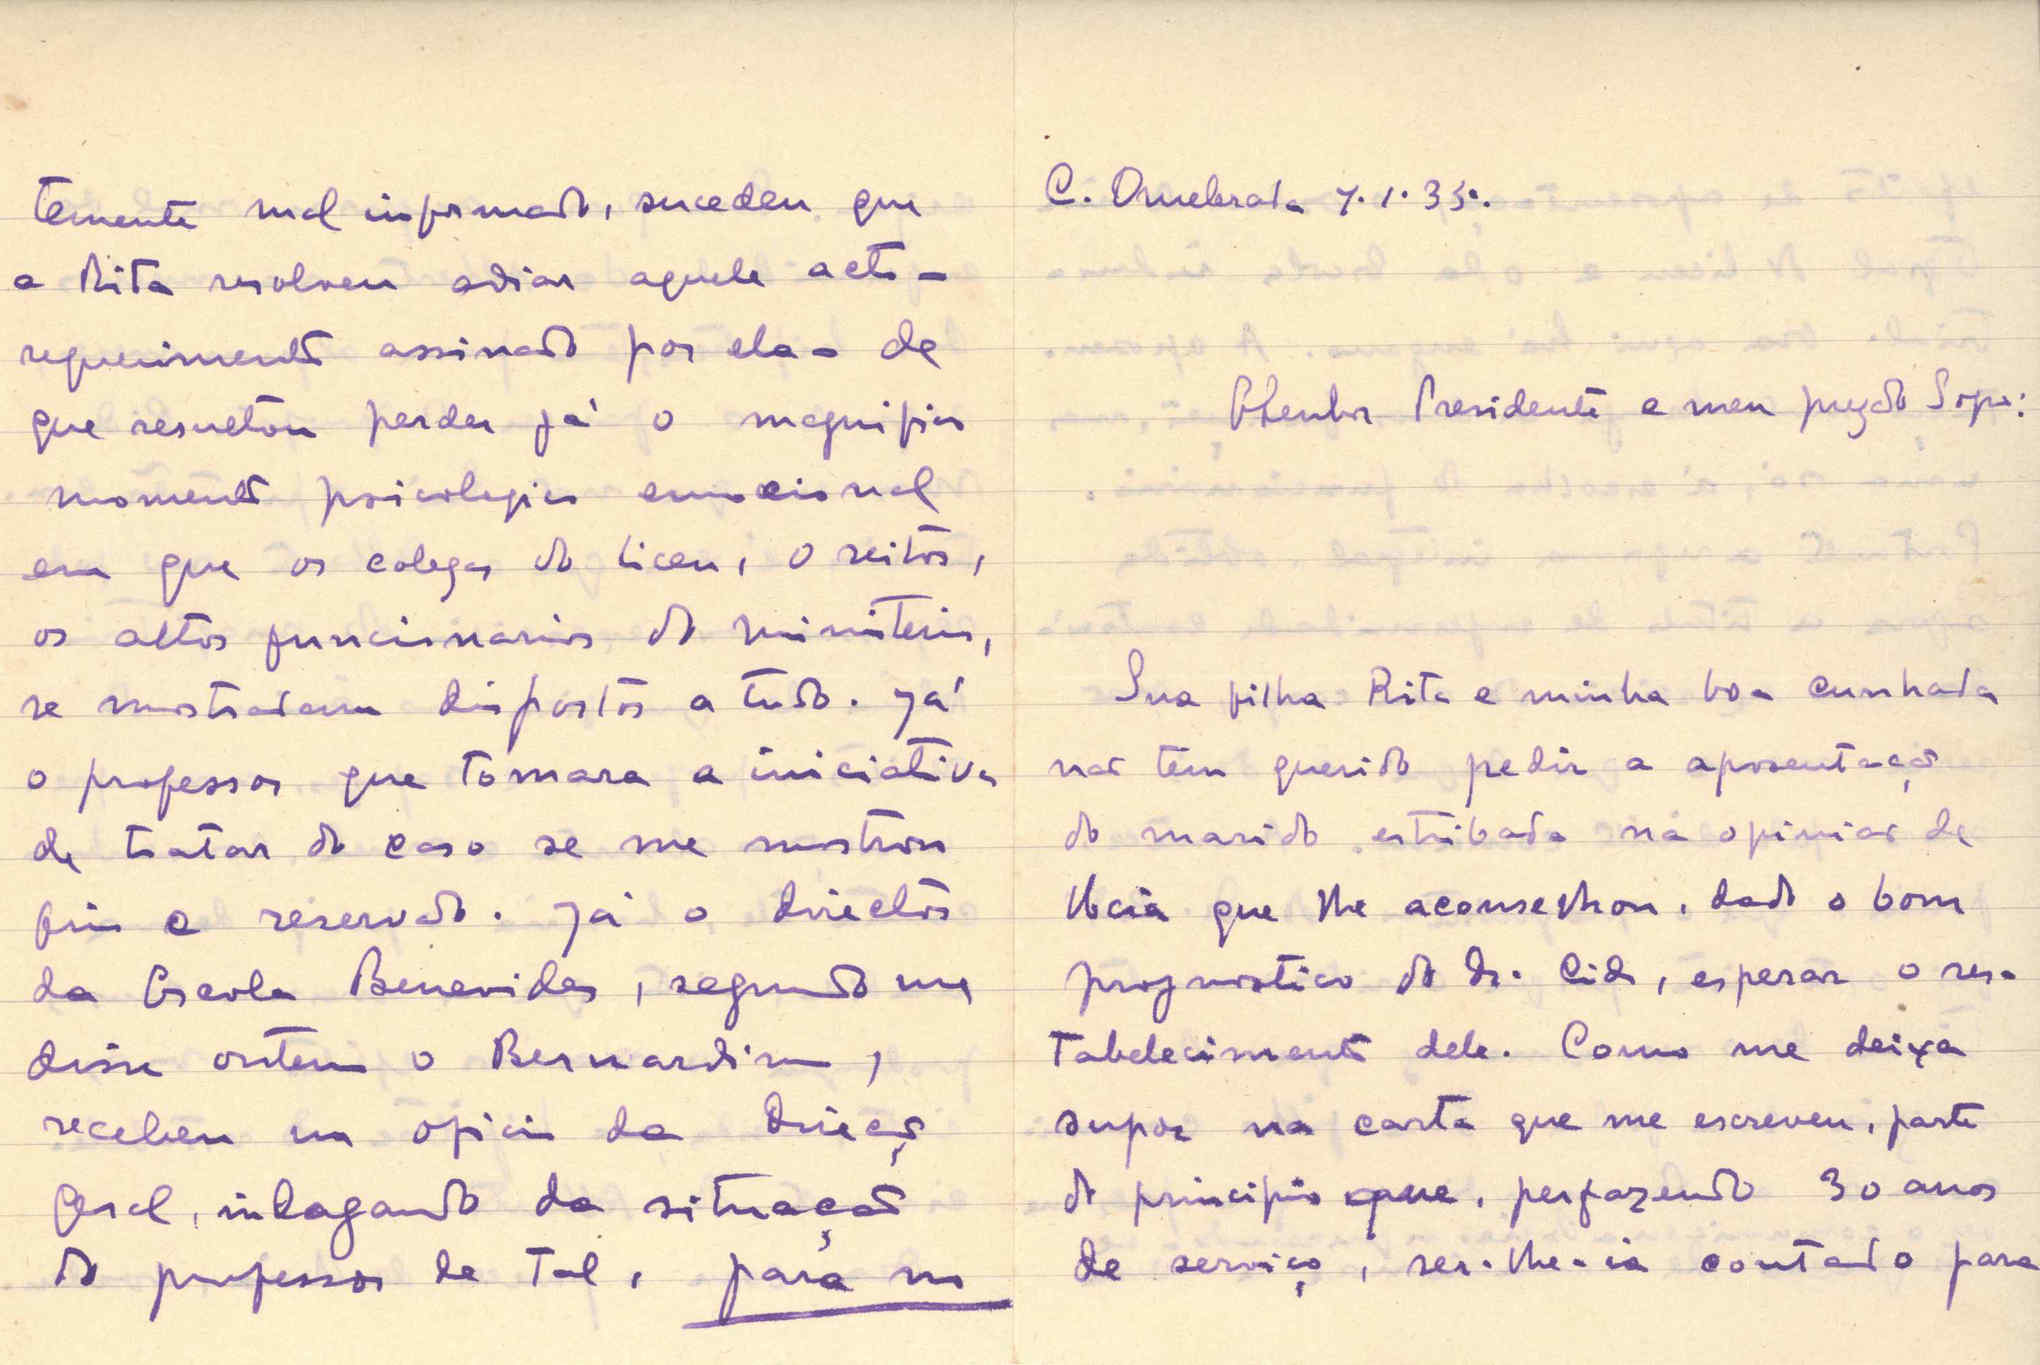 C. Quebrada 7.1.35.
Senhor Presidente e meu prezado Sogro:
Sua filha Rita e minha boa cunhada
não tem querido pedir a aposentação
do marido estribada na opinião de
V. Exia que lhe aconselhou, dado o bom
prognostico do dr. Cid, esperar o res-
tabelecimento dele. Como me deixa
supor na carta que me escreveu, parte
do principio que, perfazendo 30 anos
de serviço, ser-lhe-ia contado para
temente mal informado, sucedeu que
a Rita resolveu adiar aquele acto -
requerimento assinado por ela - de
que resultou perder já o magnifico
momento psicologico emocional
em que os colegas do liceu, o reitor,
os altos funcionarios do ministerio,
se mostraram dispostos a tudo. Já
o professor que tomara a iniciativa
de tratar do caso se me mostrou
frio e reservado. Já o director
da Escola Benevides, segundo me
disse ontem o Bernardino,
recebeu um oficio da Direcção
Geral, indagando da situação
do professor de tal, para no